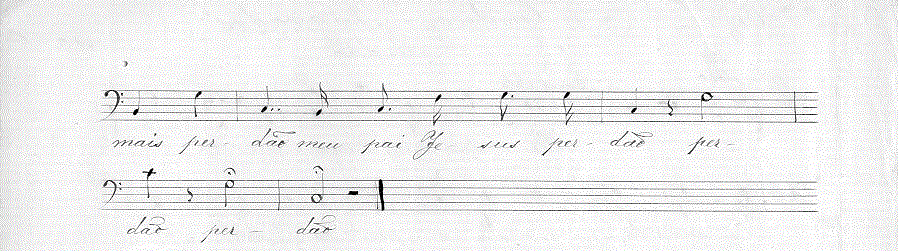 mais per- dão meu pai Je- sus per- dão per-
dão per- dão